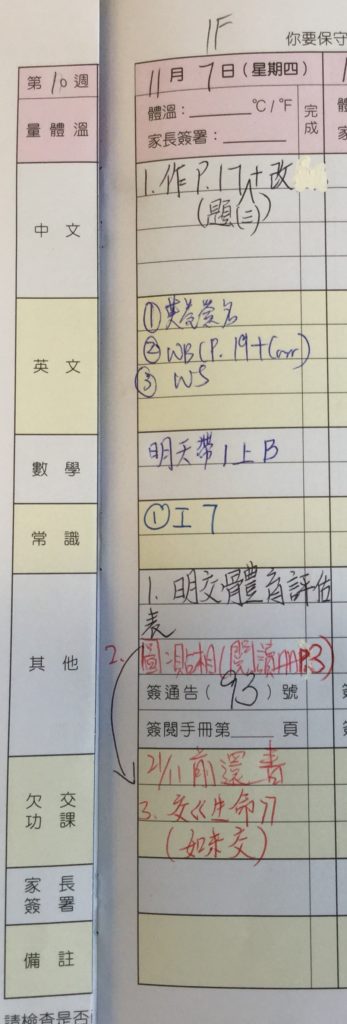 1F
你要保守
第10週
11月7日(星期四)
量體溫
體溫:______℃/℉
家長簽署:______
完成
中文
1. 作P.17+改
(題(三))
英文
①英簽名
②WB(P.19+Corr)
③ WS
數學
明天帶1上B
常識
①工7
其他
1. 明交體育評估
表
2. 圖:貼相(閱讀P3)
簽通告(93)號
簽閱手冊第______頁
欠交
功課
21/11前還書
3. 交《生命》
(如未交)
家長
簽署
備註
請檢查是否